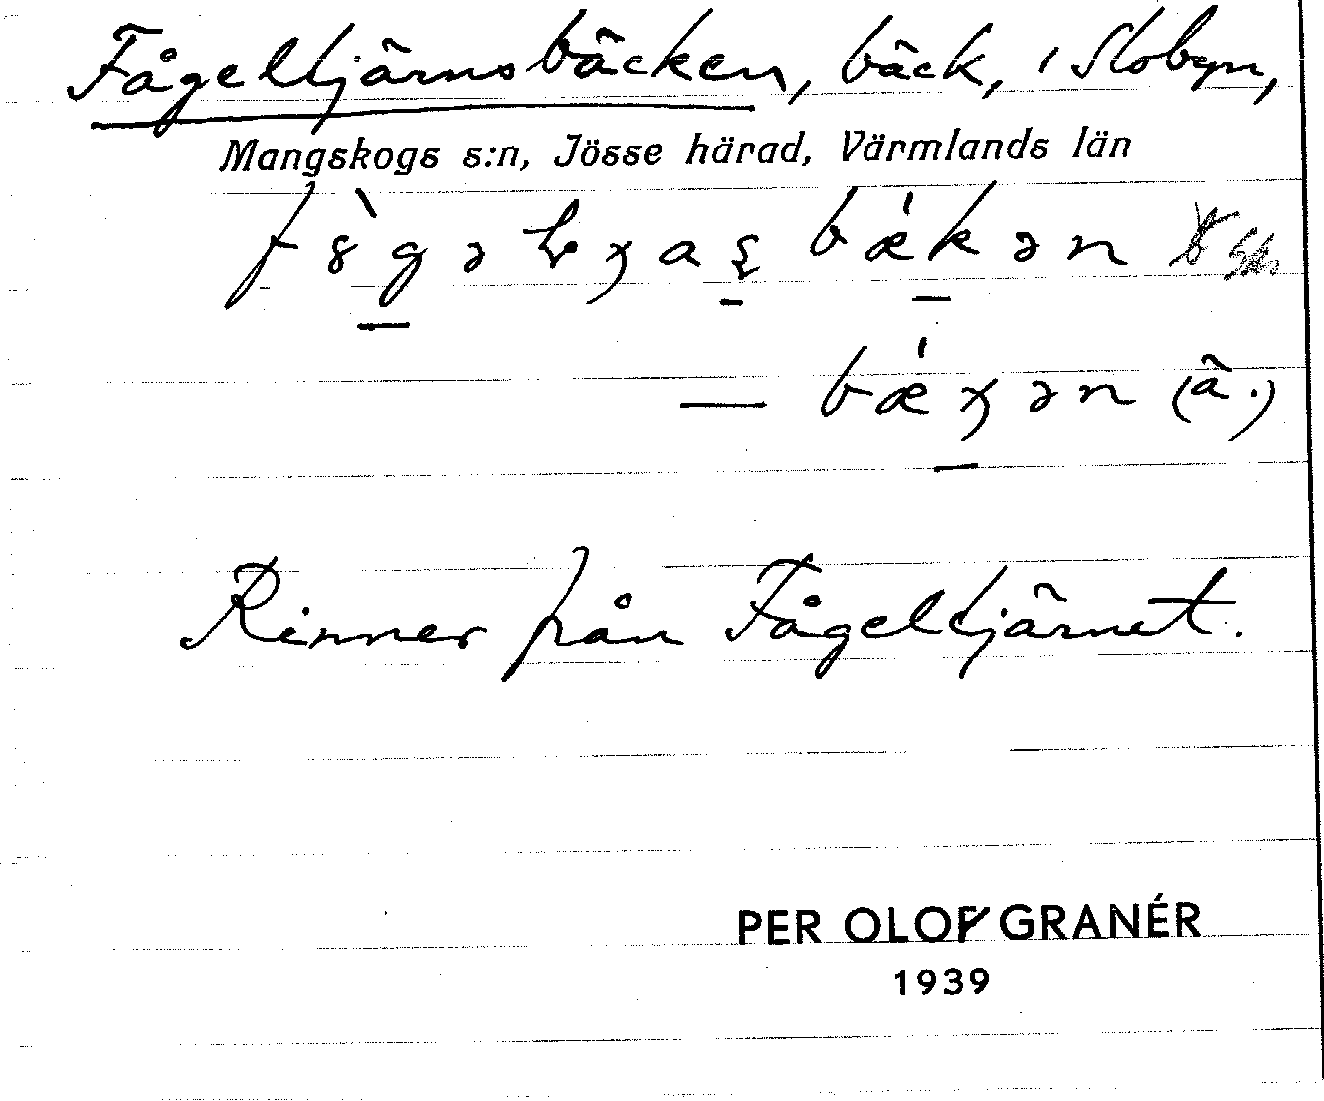 Fågeltjärnsbäcken, bäck, i Slobyn,
Mangskogs s:n, Jösse härad, Värmlands län
bækən
— bæχən (ä.)
Rinner från Fågeltjärnet.
PER OLOF GRANÉR
1939